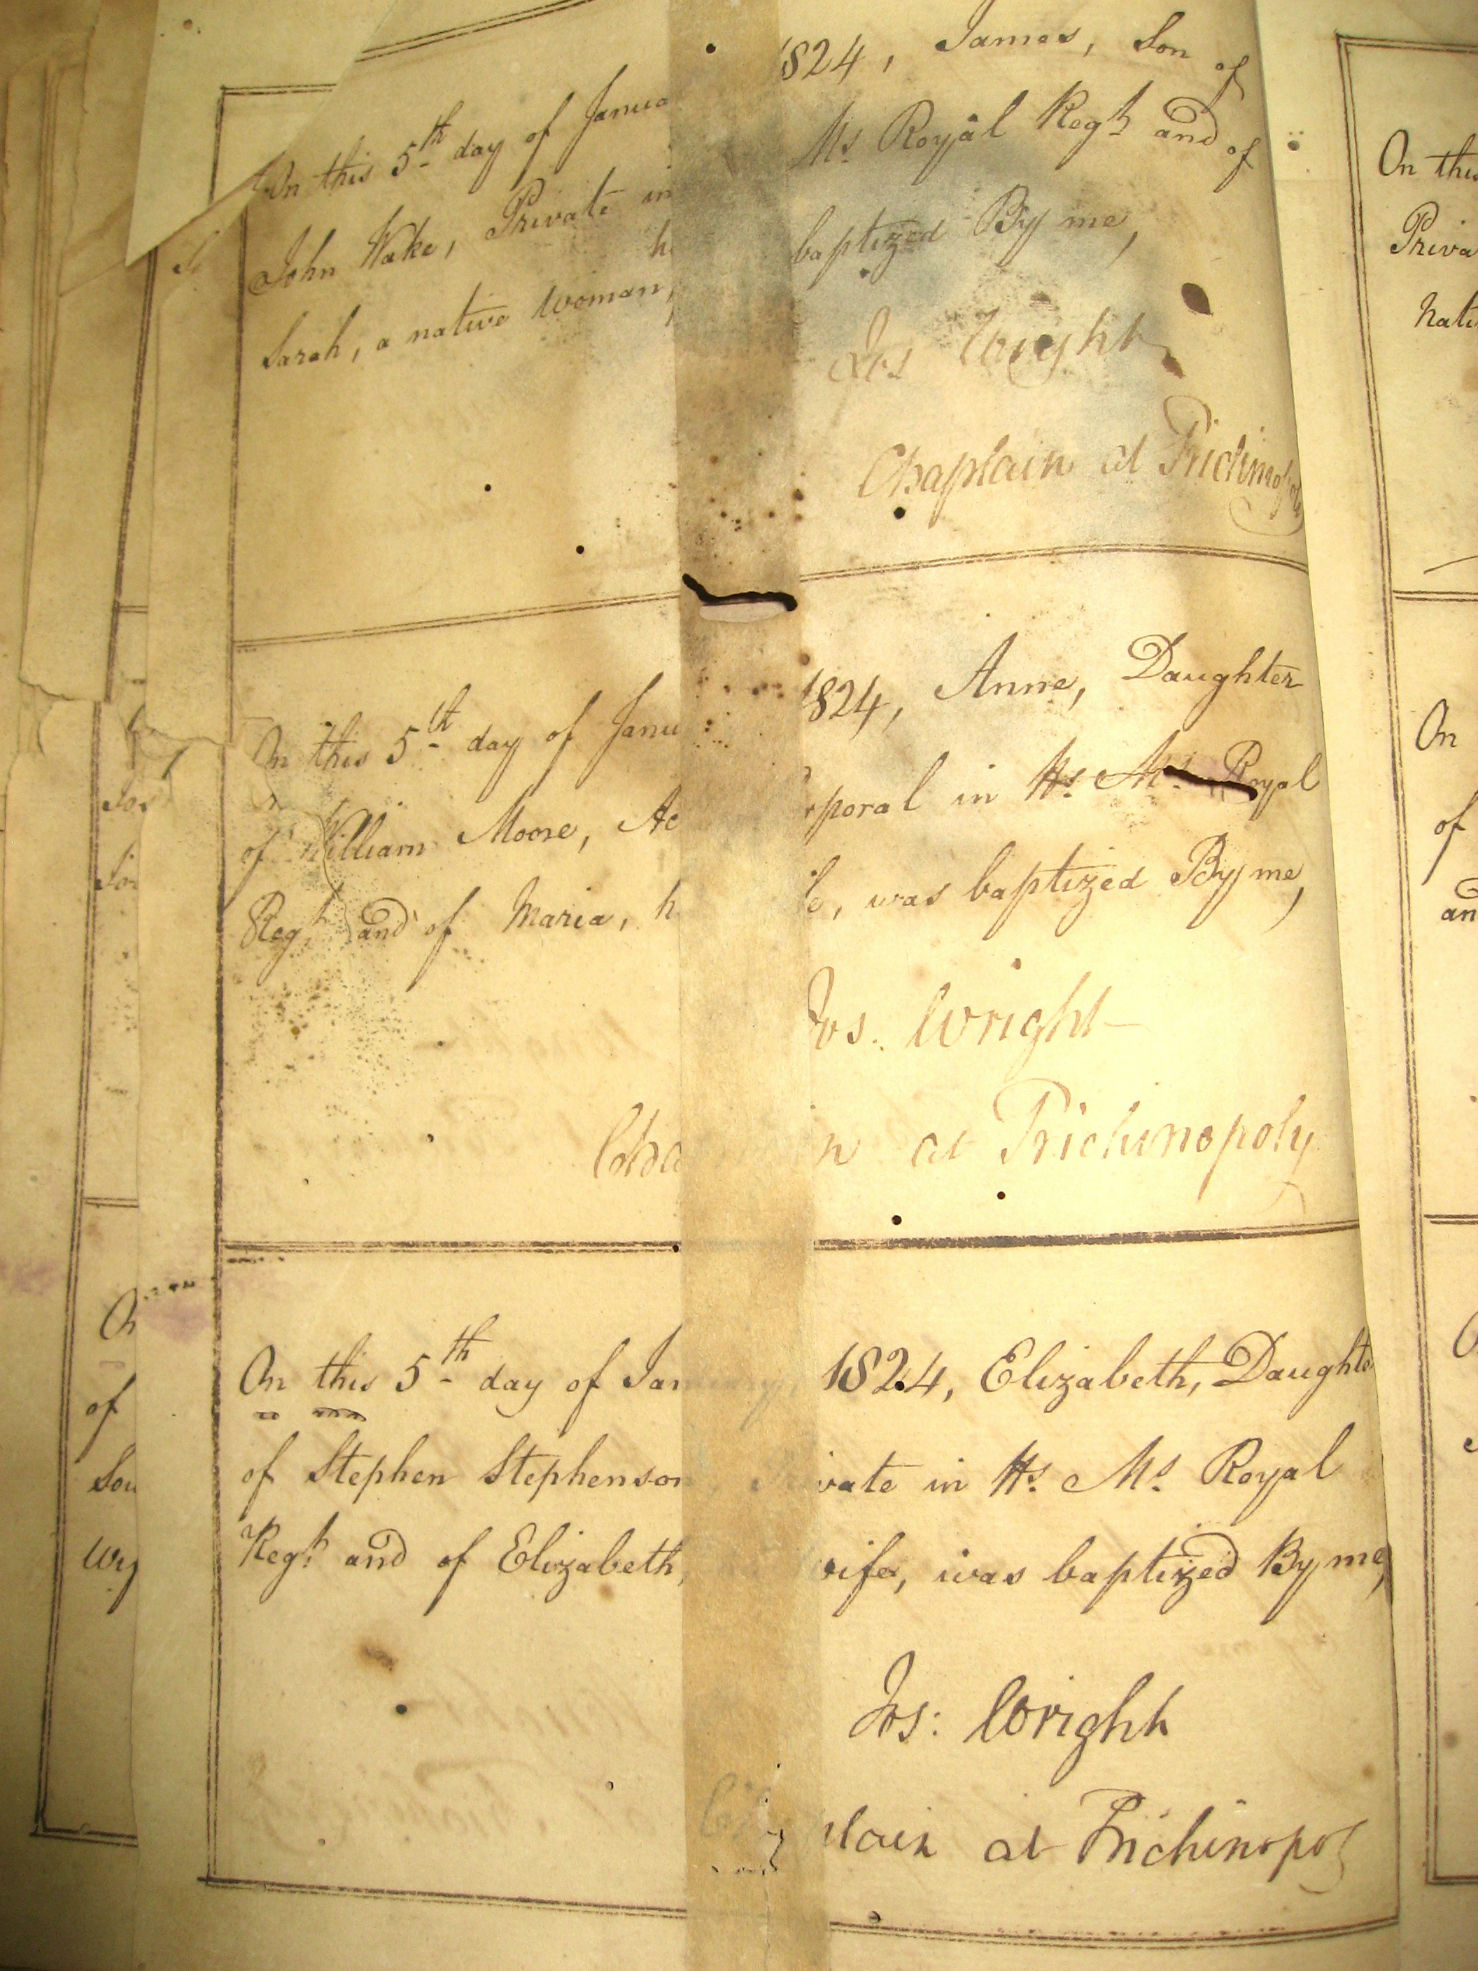 On this 5th day of Janua 1824, James, Son of
John Wake, Private in Ms. Royal Regt. and of
Sarah, a native woman, h baptized By me,
Jos Wright
Chaplain at Trichinopoly
On this 5th day of Janu 1824, Anne, Daughter
of William Moore, Ac rporal in Hs. Ms. Royal
Regt. and of Maria, h e, was baptized By me,
Jos. Wright
Cha n at Trichinopoly
On this 5th day of January 1824, Elizabeth, Daughte
of Stephen Stephenson, vate in Hs. Ms. Royal
Regt. and of Elizabeth, wife, was baptized By me,
Jos: Wright
Ch plain at Trichinopoly
On this
Priva
nati
On
of
an
On
of
Son